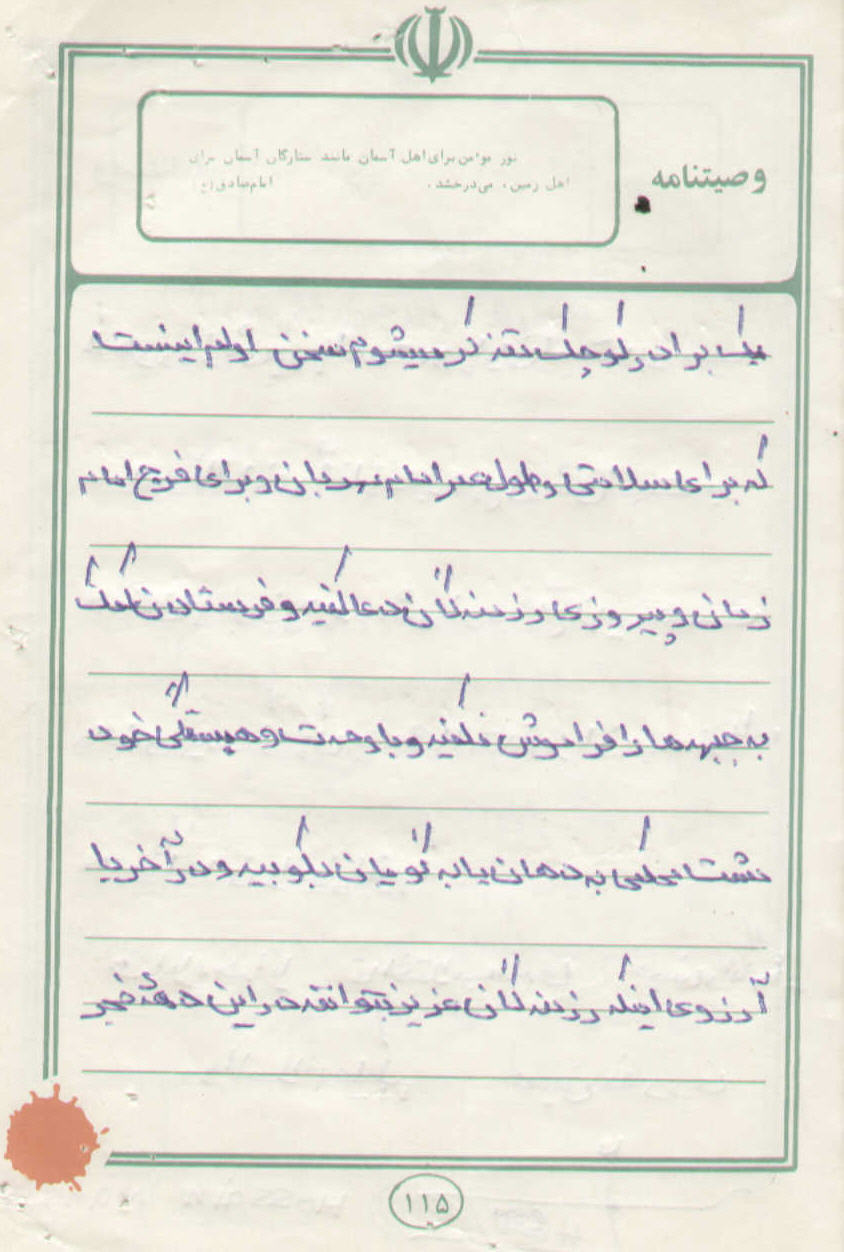 وصیتنامه
نور مؤمن برای اهل آسمان مانند ستارگان آسمان برای
اهل زمین، می‌درخشد. امام صادق (ع)
یک برادر کوچک متذکر میشوم سخن اولم اینست
که برای سلامتی و طول عمر امام مهربان و برای فرج امام
زمان و پیروزی رزمندگان دعا کنید و فرستادن کمک
به جبهه ها را فراموش نکنید و با وحدت و همبستگی خود
مشت محکمی به دهان یابه گویان بکوبید و در آخر با
آرزوی اینکه رزمندگان عزیز بتوانند در این دههٔ فجر
۱۱۵